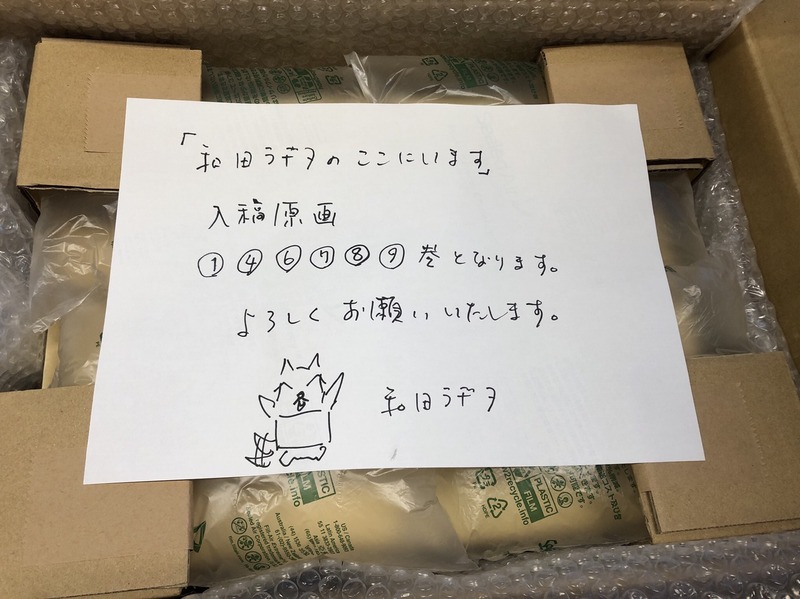 「和田ラヂヲのここにいます」
入稿原画
①④⑥⑦⑧⑨巻となります。
よろしくお願いいたします。
和田ラヂヲ
PLASTIC
FILM
recycle.info
PLASTIC
FILM
recycle.info
US / Canada
Latin America